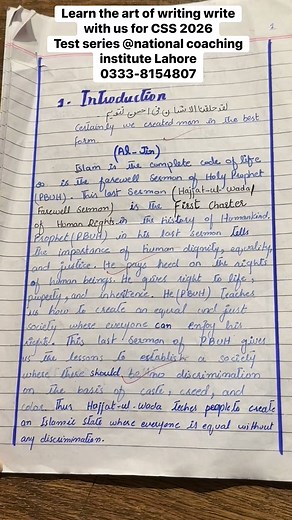 Learn the art of writing write
with us for CSS 2026
Test series @national coaching
institute Lahore
0333-8154807
1
1. Introduction
لقد خلقنا الانسان فی احسن تقویم
Certainly we created man in the best
form.
(Al-Tin)
Islam is the complete code of life
so is the farewell Sermon of Holy Prophet
(PBUH). This last Sermon (Hajjat-ul-wada/
Farewell Sermon) is the First Charter
of Human Rights in the history of Humankind.
Prophet (PBUH) in his last sermon tells
the importance of human dignety, equality
and justice. He pays heed on the rights
of human beings. He gives right to life,
property, and inheritence. He (PBUH) teaches
us how to create an equal and just
society where everyone can enjoy his
rights. This last Sermon of PBUH gives
us the lessons to establish a society
where there should be no discrimination
on the basis of caste, creed, and
color. Thus Hajjat-ul-wada teches people to create
an Islamic state where everyone is equal without
any discrimination.